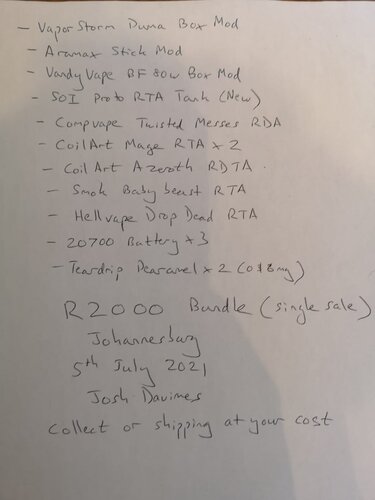 - VaporStorm Puma Box Mod
- Aramax Stick Mod
- VandyVape BF 80w Box Mod
- SOI Proto RTA Tank (New)
- Compvape Twisted Messes RDA
- CoilArt Mage RTA x 2
- CoilArt Azeroth RDTA
- Smok Baby beast RTA
- Hellvape Drop Dead RTA
- 20700 Battery x 3
- Teardrip x 2
R2000 Bundle (single sale)
Johannesburg
5th July 2021
Josh
Collect or shipping at your cost